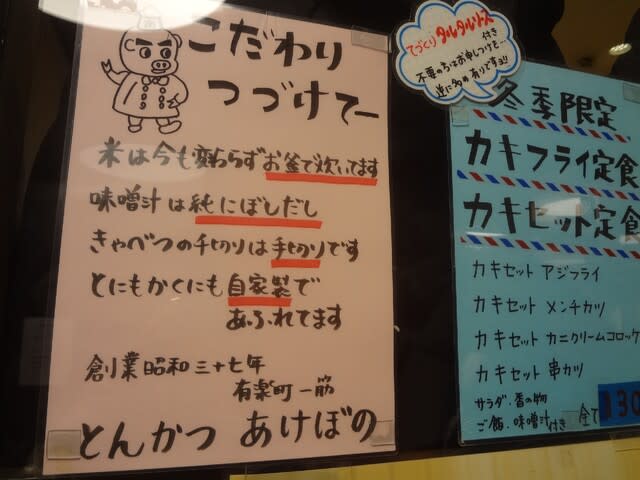 こだわり
つづけてー
米は今も変らずお釜で炊いてます
味噌汁は純にぼしだし
きゃべつの千切りは手切りです
とにもかくにも自家製で
あふれてます
創業昭和三十七年
有楽町一筋
とんかつ あけぼの
てづくりタルタルソース
付き
不要の方はお申しつけを〜
逆に多め ありですョ!!
冬季限定
カキフライ定食
カキセット定食
カキセット アジフライ
カキセット メンチカツ
カキセット カニクリームコロッケ
カキセット 串カツ
サラダ・香の物
ご飯・味噌汁付き 全て